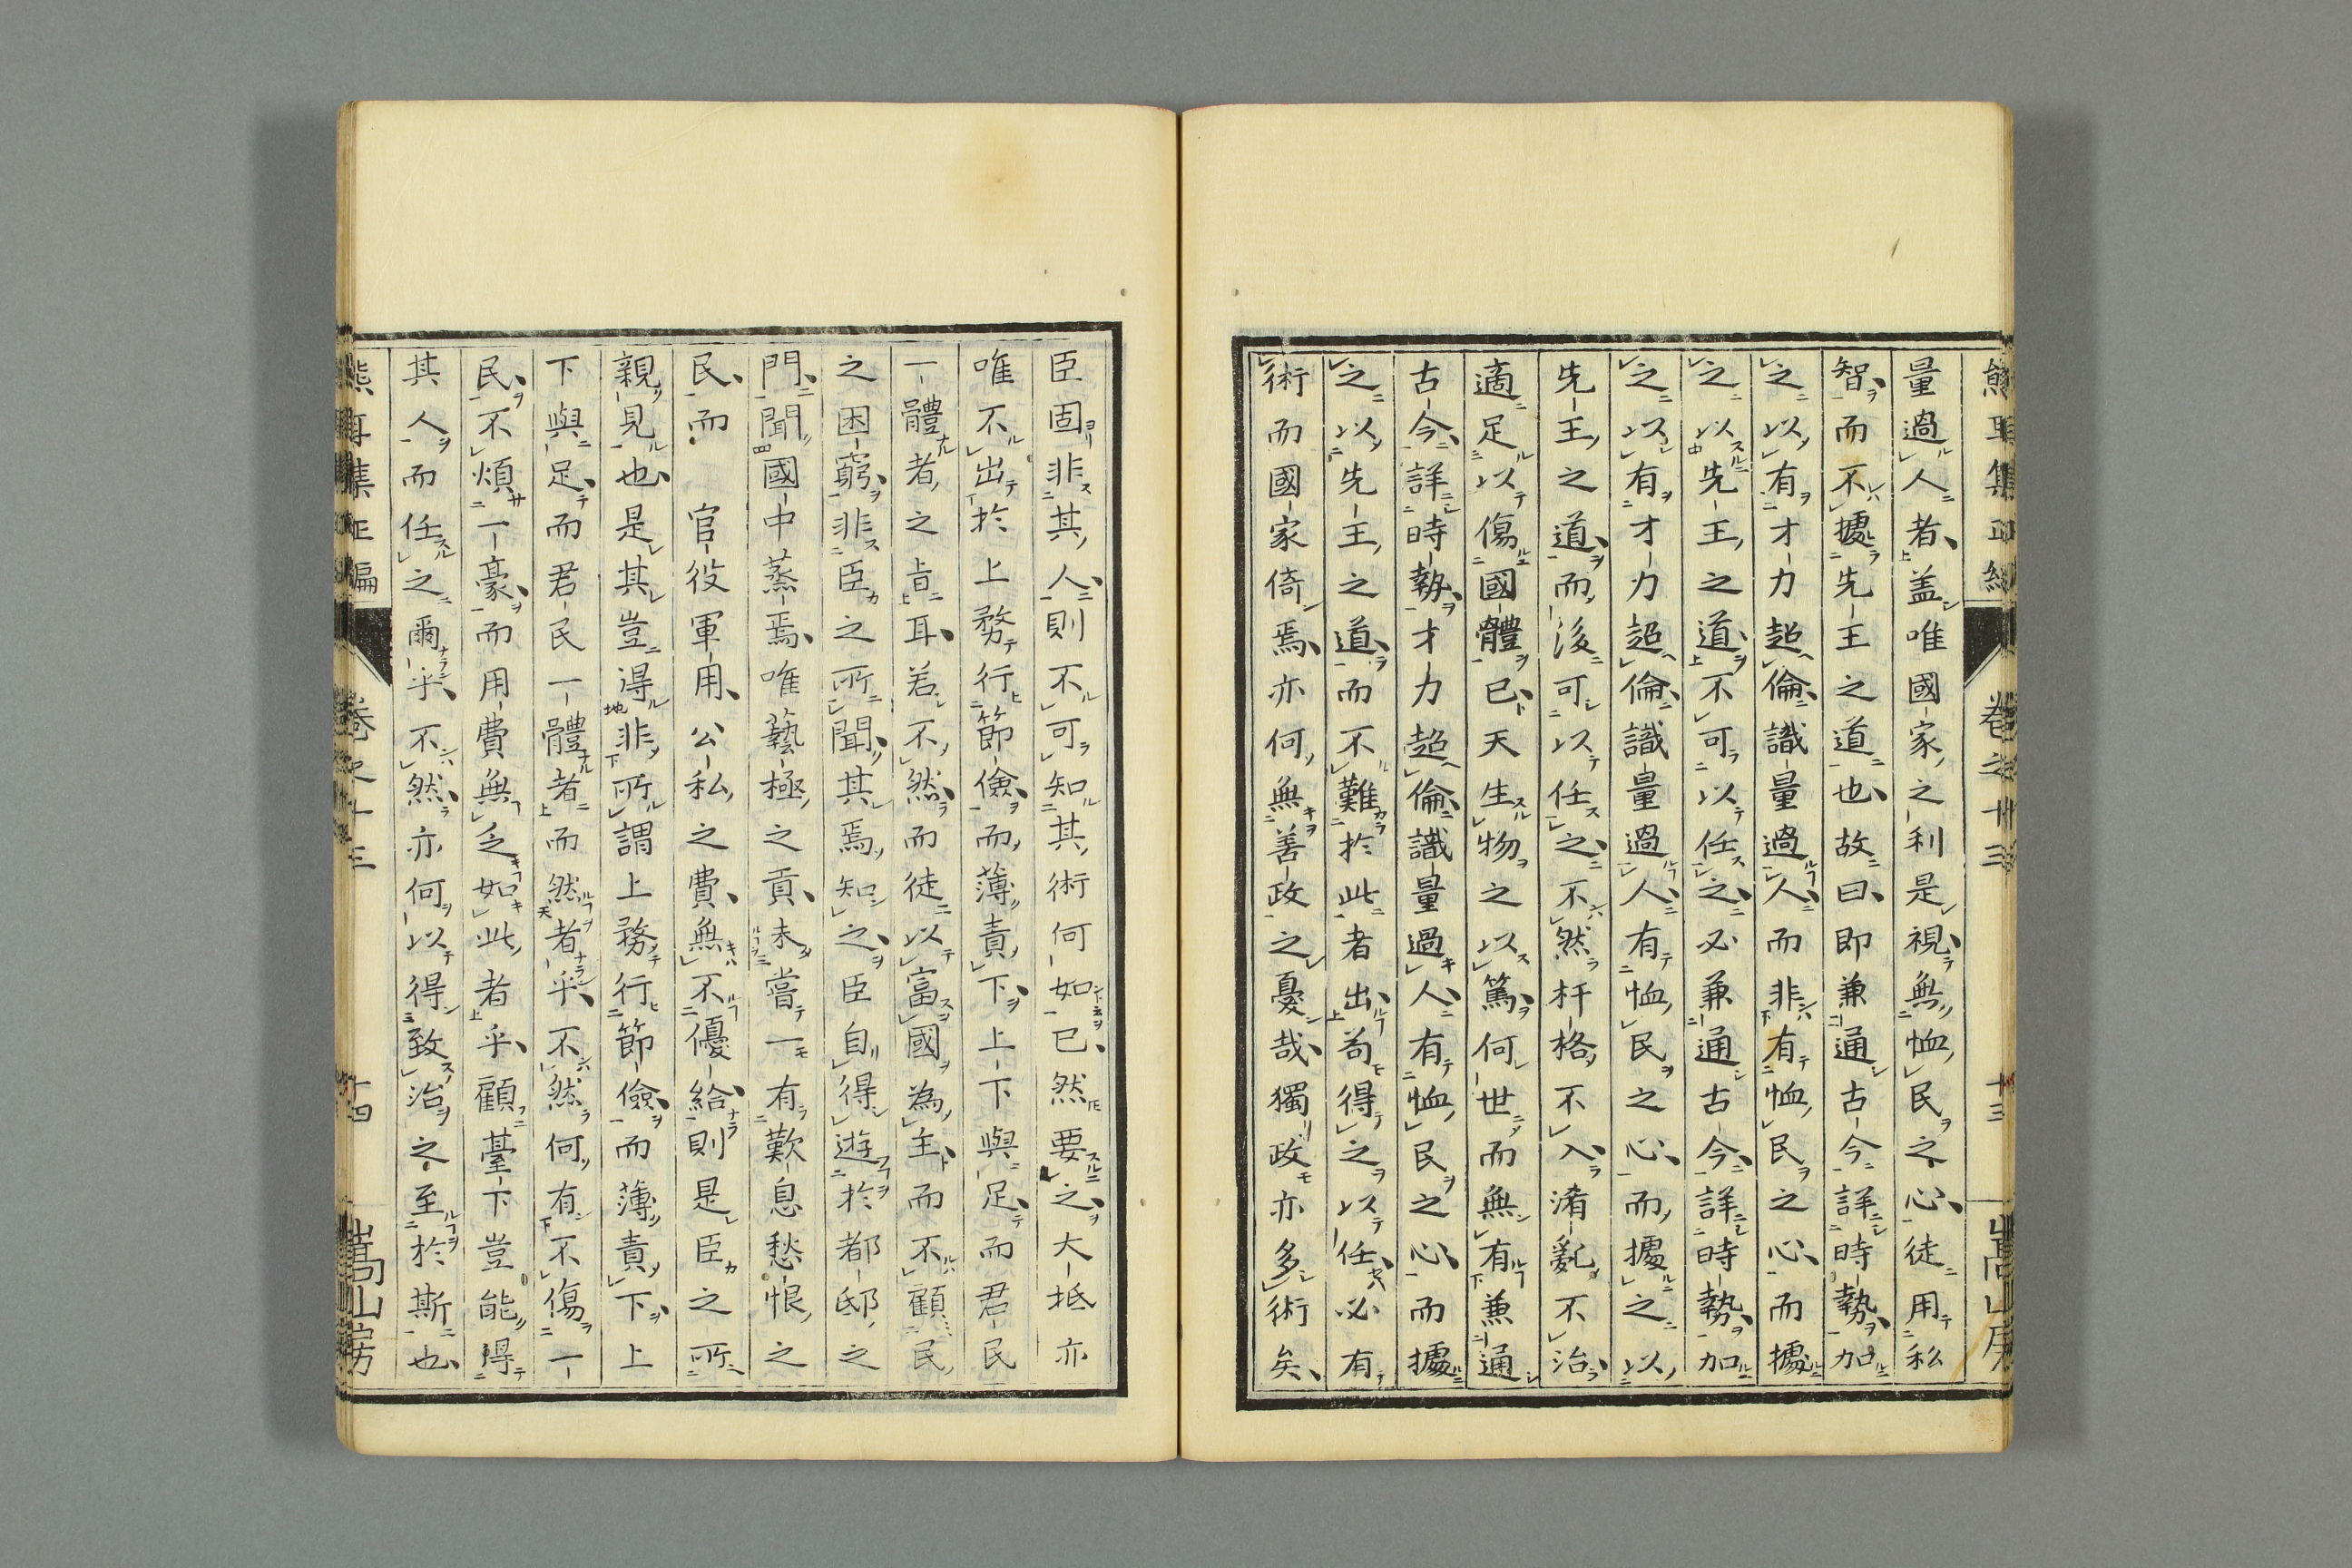 量過人者盖唯國家之利是視無恤民之心徒用私
智而不據先王之道也故曰即兼通古今詳時勢加
之以有才力超倫識量過人而非有恤民之心而據
之以先王之道不可以任之必兼通古今詳時勢加
之以有才力超倫識量過人有恤民之心而據之以
先王之道而後可以任之不然杆格不入淆亂不治
適足以傷國體已天生物之以篤何世而無有兼通
古今詳時勢才力超倫識量過人有恤民之心而據
之以先王之道而不難於此者出苟得之以任必有
術而國家倚焉亦何無善政之憂哉獨政亦多術矣
臣固非其人則不可知其術何如已然要之大抵亦
唯不出於上務行節儉而薄責下上下與足而君民
一體者之旨耳若不然而徒以富國為主而不顧民
之困窮非臣之所聞其焉知之臣自得遊於都邸之
門聞國中蒸焉唯藝極之貢未嘗一有歎息愁恨之
民而 官役軍用公私之費無不優給則是臣之所
親見也是其豈得非所謂上務行節儉而薄責下上
下與足而君民一體者而然者乎不然何有不傷一
民不煩一豪而用費無乏如此者乎顧臺下豈能得
其人而任之爾乎不然亦何以得致治之至於斯也
卷之十三
嵩山房